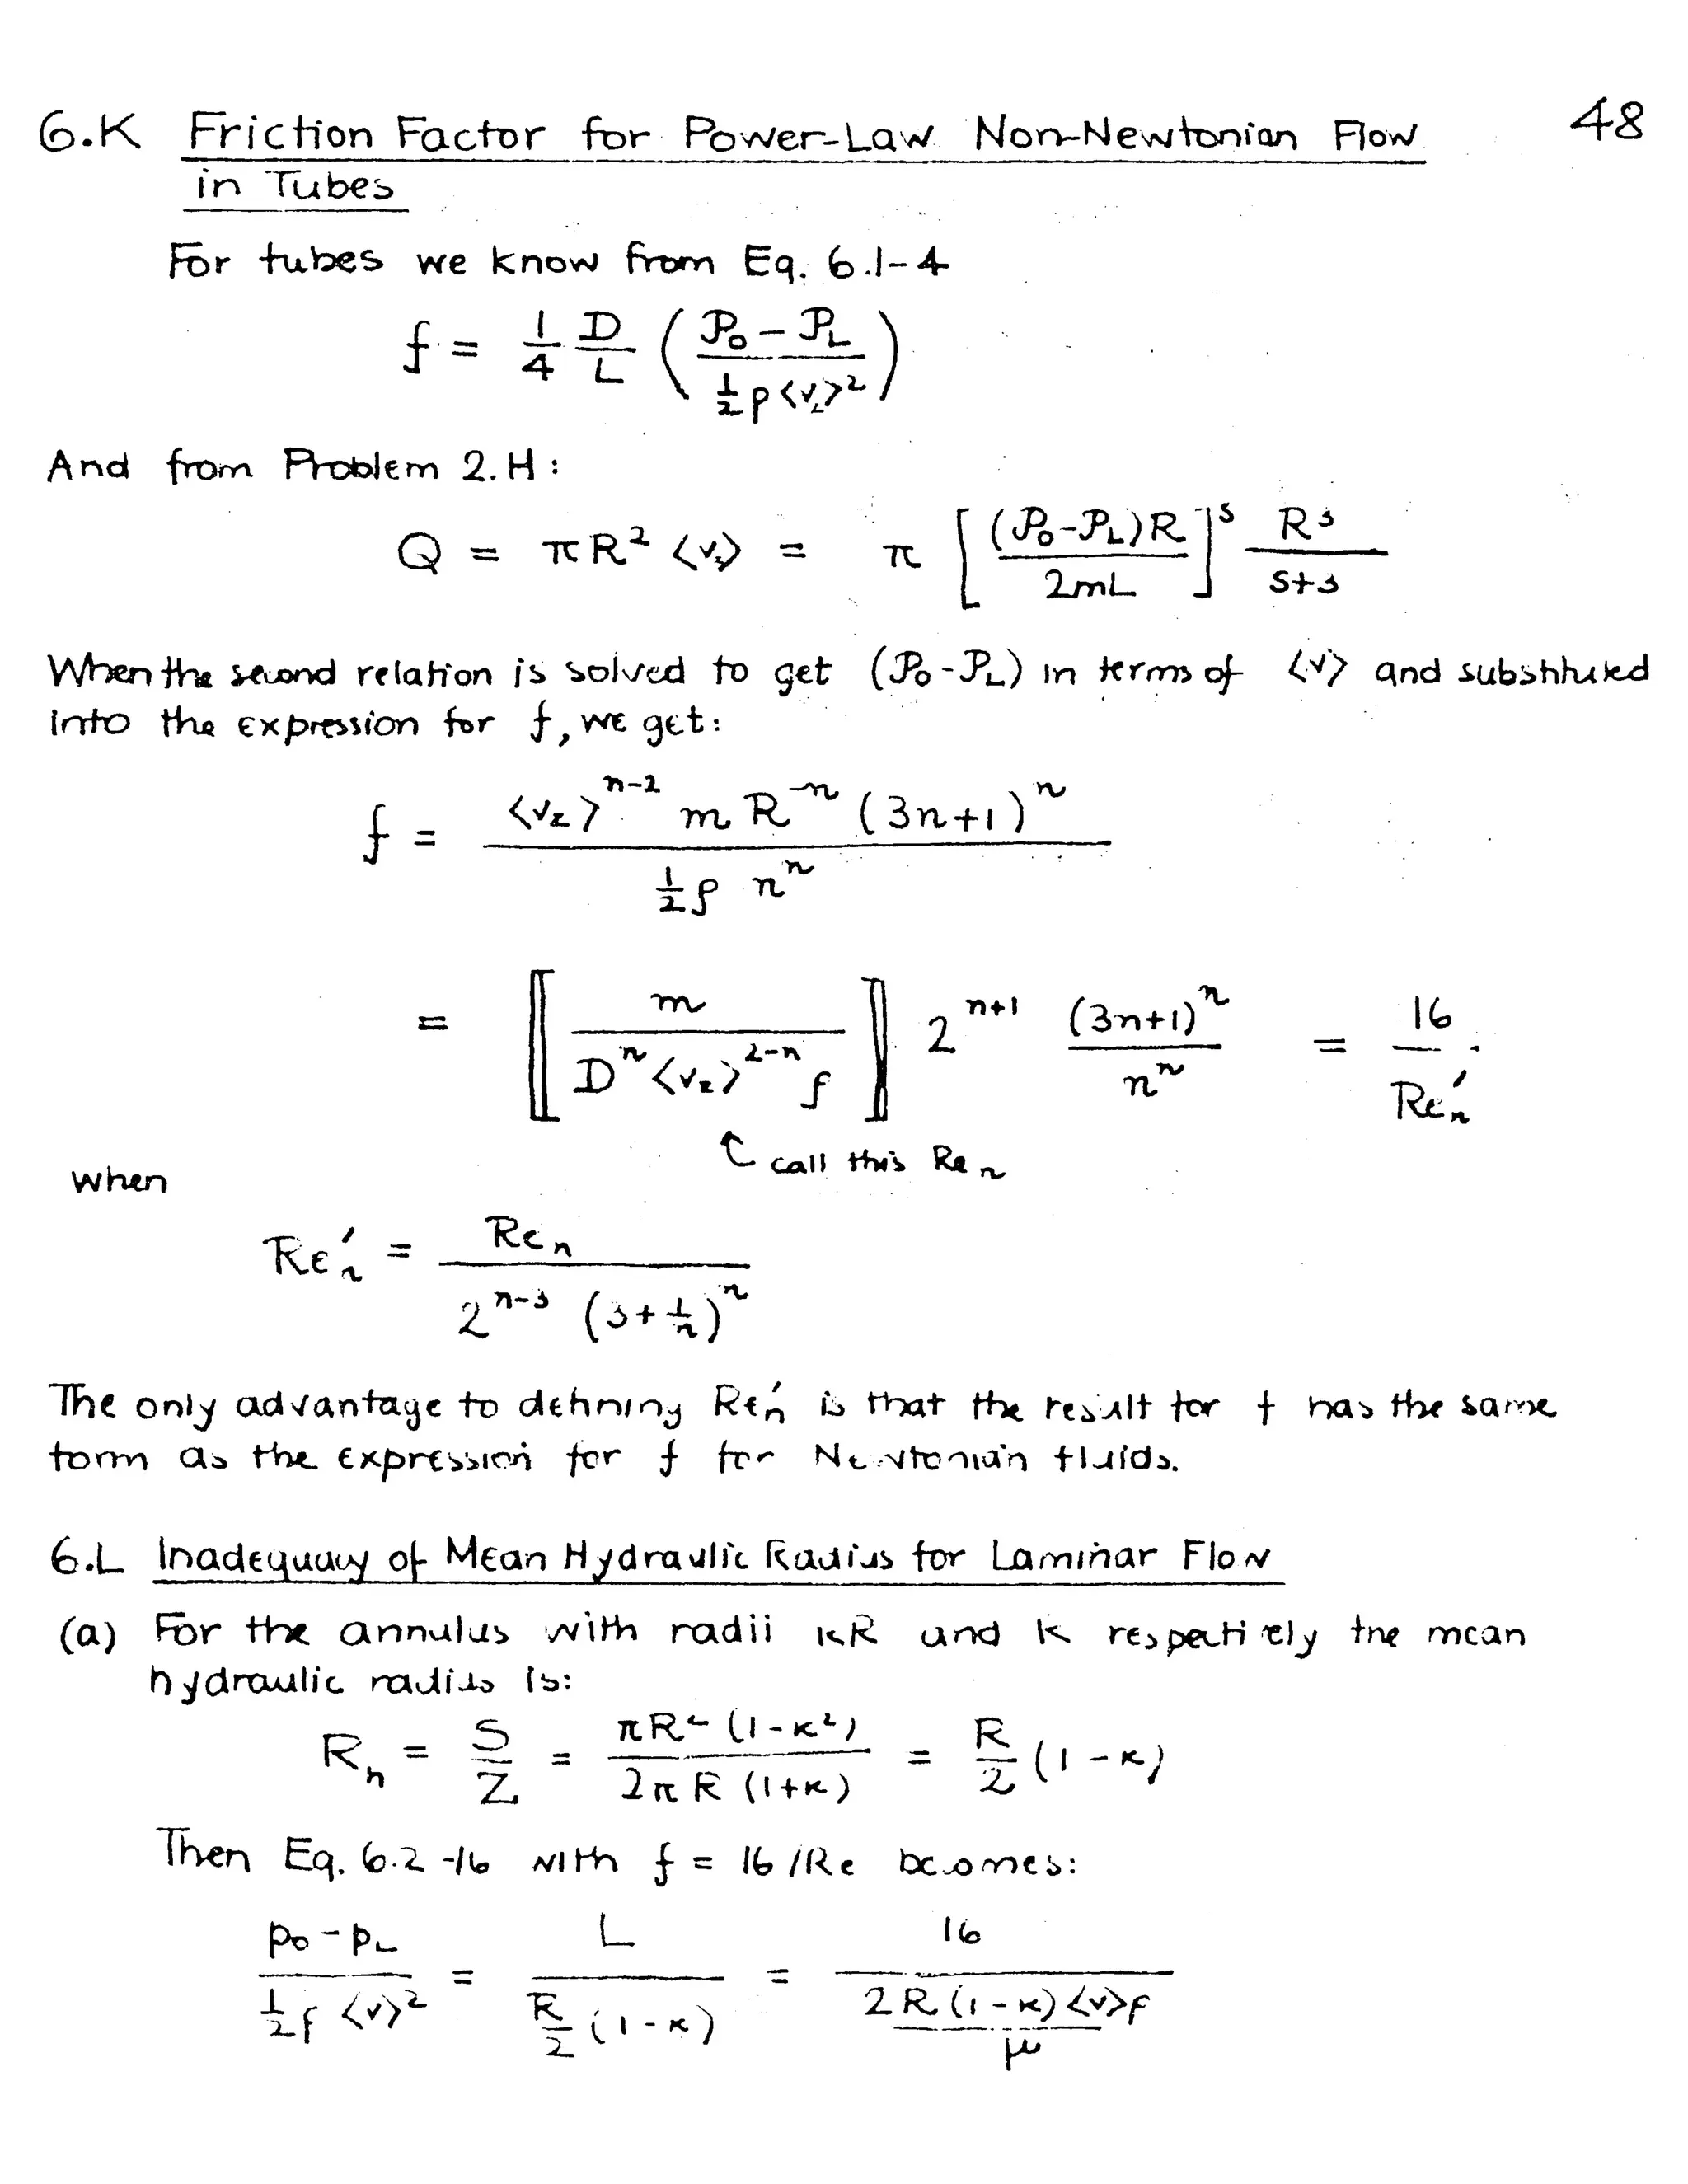 6.K Friction Factor for Power-Law Non-Newtonian Flow 48
in Tubes
For tubes we know from Eq. 6.1-4
f = 1/4 D/L ( (𝒫₀ - 𝒫_L) / (½ρ⟨v_z⟩²) )
And from Problem 2.H:
Q = πR² ⟨v_z⟩ = π [ (𝒫₀-𝒫_L)R / 2mL ]^s R³/(s+3)
When the second relation is solved to get (𝒫₀-𝒫_L) in terms of ⟨v⟩ and substituted
into the expression for f, we get:
f = ⟨v_z⟩^(n-2) m R^(-n) (3n+1)^n / (½ρ n^n)
= ⟦ m / (D^n ⟨v_z⟩^(2-n) ρ) ⟧ 2^(n+1) (3n+1)^n / n^n = 16 / Re'_n .
↑ call this Re_n
when
Re'_n = Re_n / (2^(n-3) (3+1/n)^n)
The only advantage to defining Re'_n is that the result for f has the same
form as the expression for f for Newtonian fluids.
6.L Inadequacy of Mean Hydraulic Radius for Laminar Flow
(a) For the annulus with radii κR and R respectively the mean
hydraulic radius is:
R_h = S/Z = πR²(1-κ²) / 2πR(1+κ) = R/2 (1-κ)
Then Eq. 6.2-16 with f = 16/Re becomes:
(p₀-p_L) / (½ρ⟨v⟩²) = L / (R/2 (1-κ)) = 16 / (2R(1-κ)⟨v⟩ρ / μ)